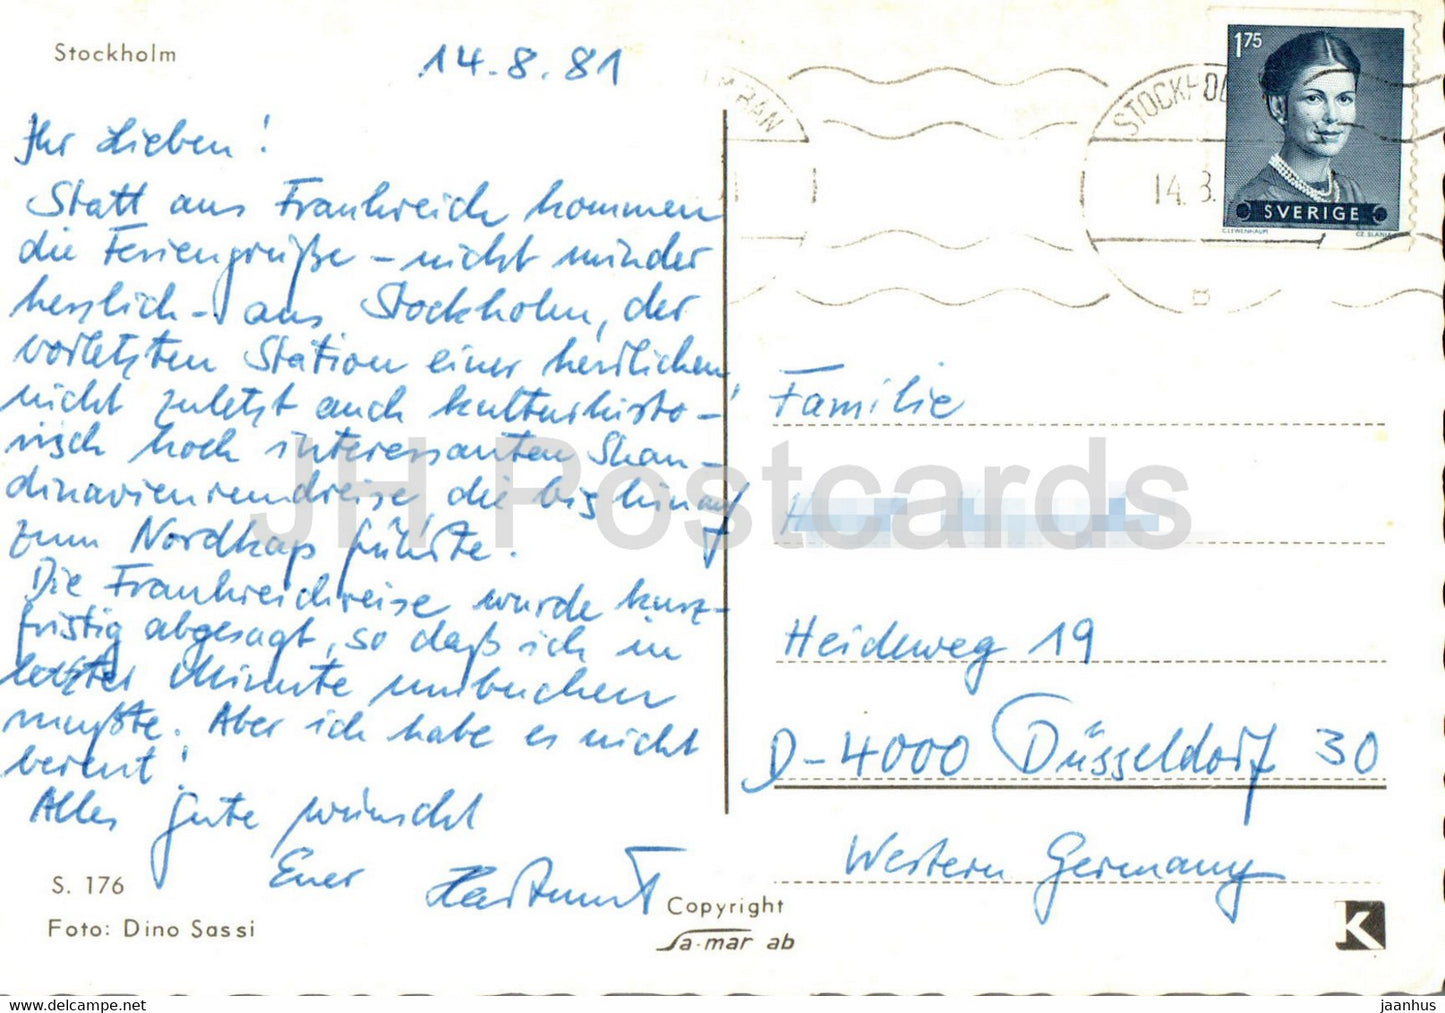 Stockholm
14.8.81
Ihr Lieben!
Statt aus Frankreich kommen
die Feriengrüße – nicht minder
herzlich – aus Stockholm, der
vorletzten Station einer herrlichen,
nicht zuletzt auch kulturhisto-
risch hoch interessanten Skan-
dinavienrundreise die bis hinauf
zum Nordkap führte.
Die Frankreichreise wurde kurz-
fristig abgesagt, so daß ich in
letzter Minute umbuchen
mußte. Aber ich habe es nicht
bereut!
Alles Gute wünscht
Euer Hartmut
S. 176
Foto: Dino Sassi
Copyright
Sa-mar ab
K
STOCKHOL
14.8.
BAN
1.75
SVERIGE
CLEWENHAUPT
CZ. SLANIA
Familie
Heideweg 19
D-4000 Düsseldorf 30
Western Germany
JH Postcards
https://www.ebay.com
jaanhus